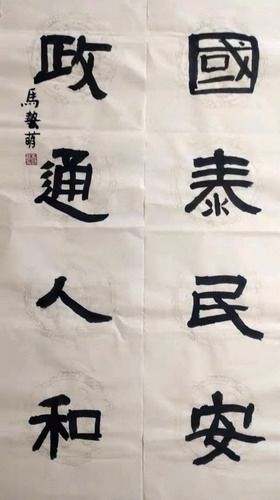 國泰民安
政通人和
馬藝萌